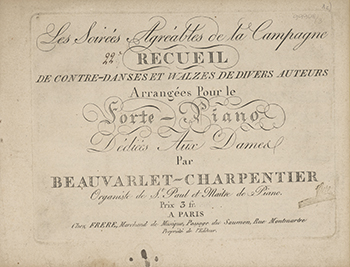 Les Soirées Agréables de la Campagne
22e RECUEIL
DE CONTRE-DANSES ET WALZES DE DIVERS AUTEURS
Arrangées Pour le
Forte-Piano
Dédiées Aux Dames
Par
BEAUVARLET-CHARPENTIER
Organiste de St. Paul et Maître de Piano.
Prix 3 fr.
A PARIS
Chez FRERE, Marchand de Musique, Passage du Saumon, Rue Montmartre
Propriété de l'Editeur.